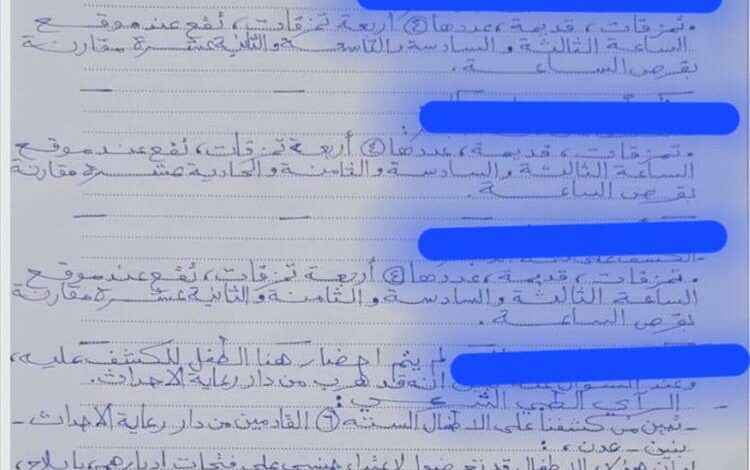 وتمزقات، قديمة، عددها ④ أربعة تمزقات، تقع عند موقع
الساعة الثالثة والسادسة والتاسعة والثانية عشرة مقارنة
بقرص الساعة.
وتمزقات، قديمة، عددها ④ أربعة تمزقات، تقع عند موقع
الساعة الثالثة والسادسة والثامنة والحادية عشرة مقارنة
بقرص الساعة.
وتمزقات، قديمة، عددها ④ أربعة تمزقات، تقع عند موقع
الساعة الثالثة والسادسة والثامنة والثانية عشرة مقارنة
بقرص الساعة.
لم يتم احضار هذا الطفل للكشف عليه،
وعند السؤال عنه تبين انه قد هرب من دار رعاية الاحداث.
- الرأي الطبي الشرعي:
- تبين من كشفنا على الاطفال الستة ⑥ القادمين من دار رعاية الاحداث -
بنين - عدن، :
هؤلاء الاطفال قد تعرضوا لاعتداء جنسي على فتحات ادبارهم، بإيلاج،